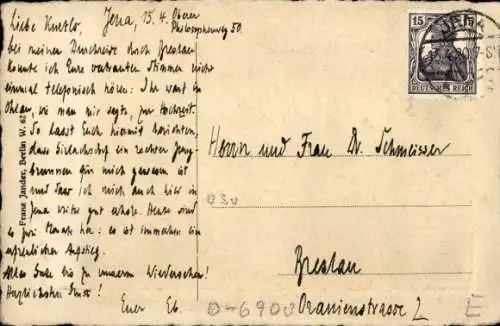 Liebe Jena, 15.4. Oberer
Philosophenweg 50.
bei meiner Durchreise durch Breslau
konnte ich Eure vertrauten Stimmen nicht
einmal telefonisch hören: Ihr wart in
Ohlau, wie man mir sagte, zur Hochzeit.
So lasst Euch hiermit berichten,
dass ein rechter Jung-
brunnen für mich gewesen ist
und dass ich mich auch hier in
Jena weiter gut erhole. Heute sind
es zwei Monate her: es ist immerhin ein
erfreulicher Anstieg.
Alles Gute bis zu unserem Wiedersehen!
Herzlichsten Gruss!
Euer Eb.
Franz Jander, Berlin W. 62
15
DEUTSCHES REICH
JENA
Herrn und Frau Dr. Schmeisser
Breslau
Oranienstrasse 2
D-6900
E